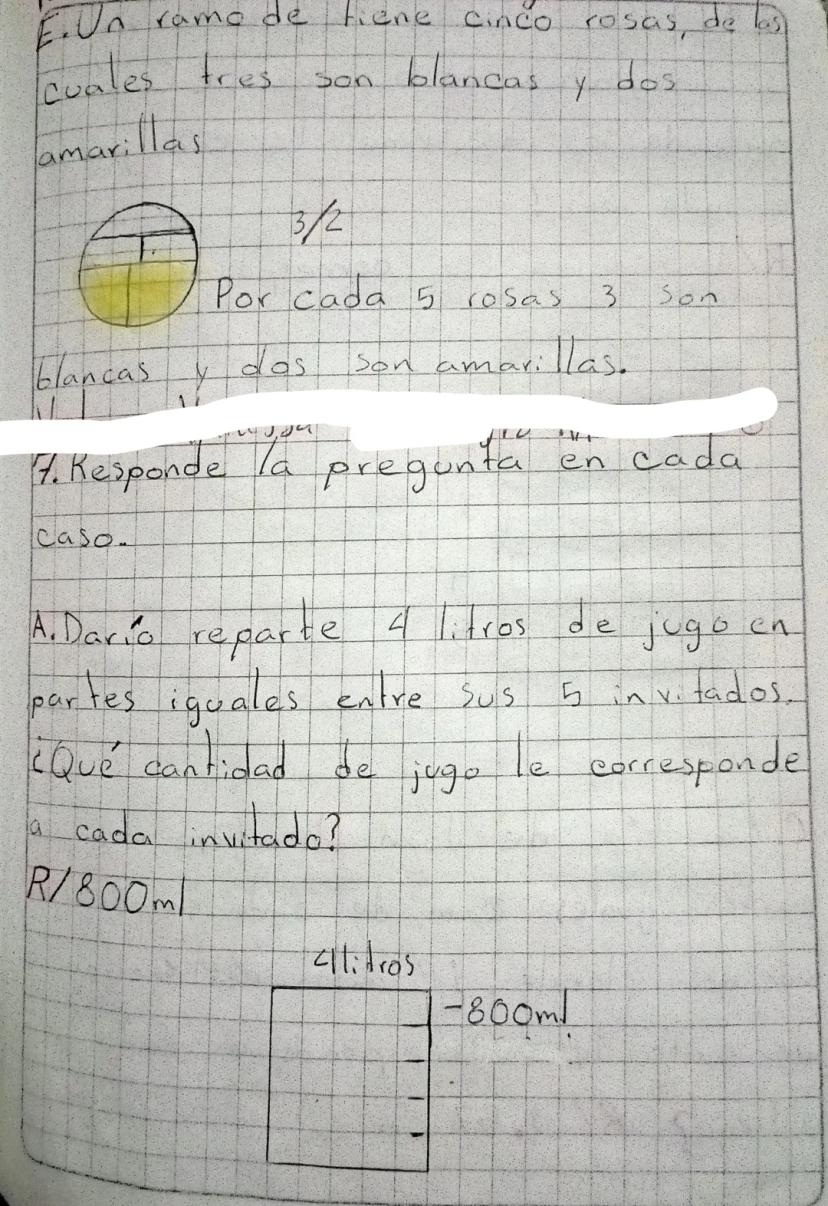 E. Un ramo de tiene cinco rosas, de las
cuales tres son blancas y dos
amarillas
3/2
Por cada 5 rosas 3 son
blancas y dos son amarillas.
7. Responde la pregunta en cada
caso.
A. Darío reparte 4 litros de jugo en
partes iguales entre sus 5 invitados.
¿Qué cantidad de jugo le corresponde
a cada invitado?
R/800ml
4 litros
-800ml